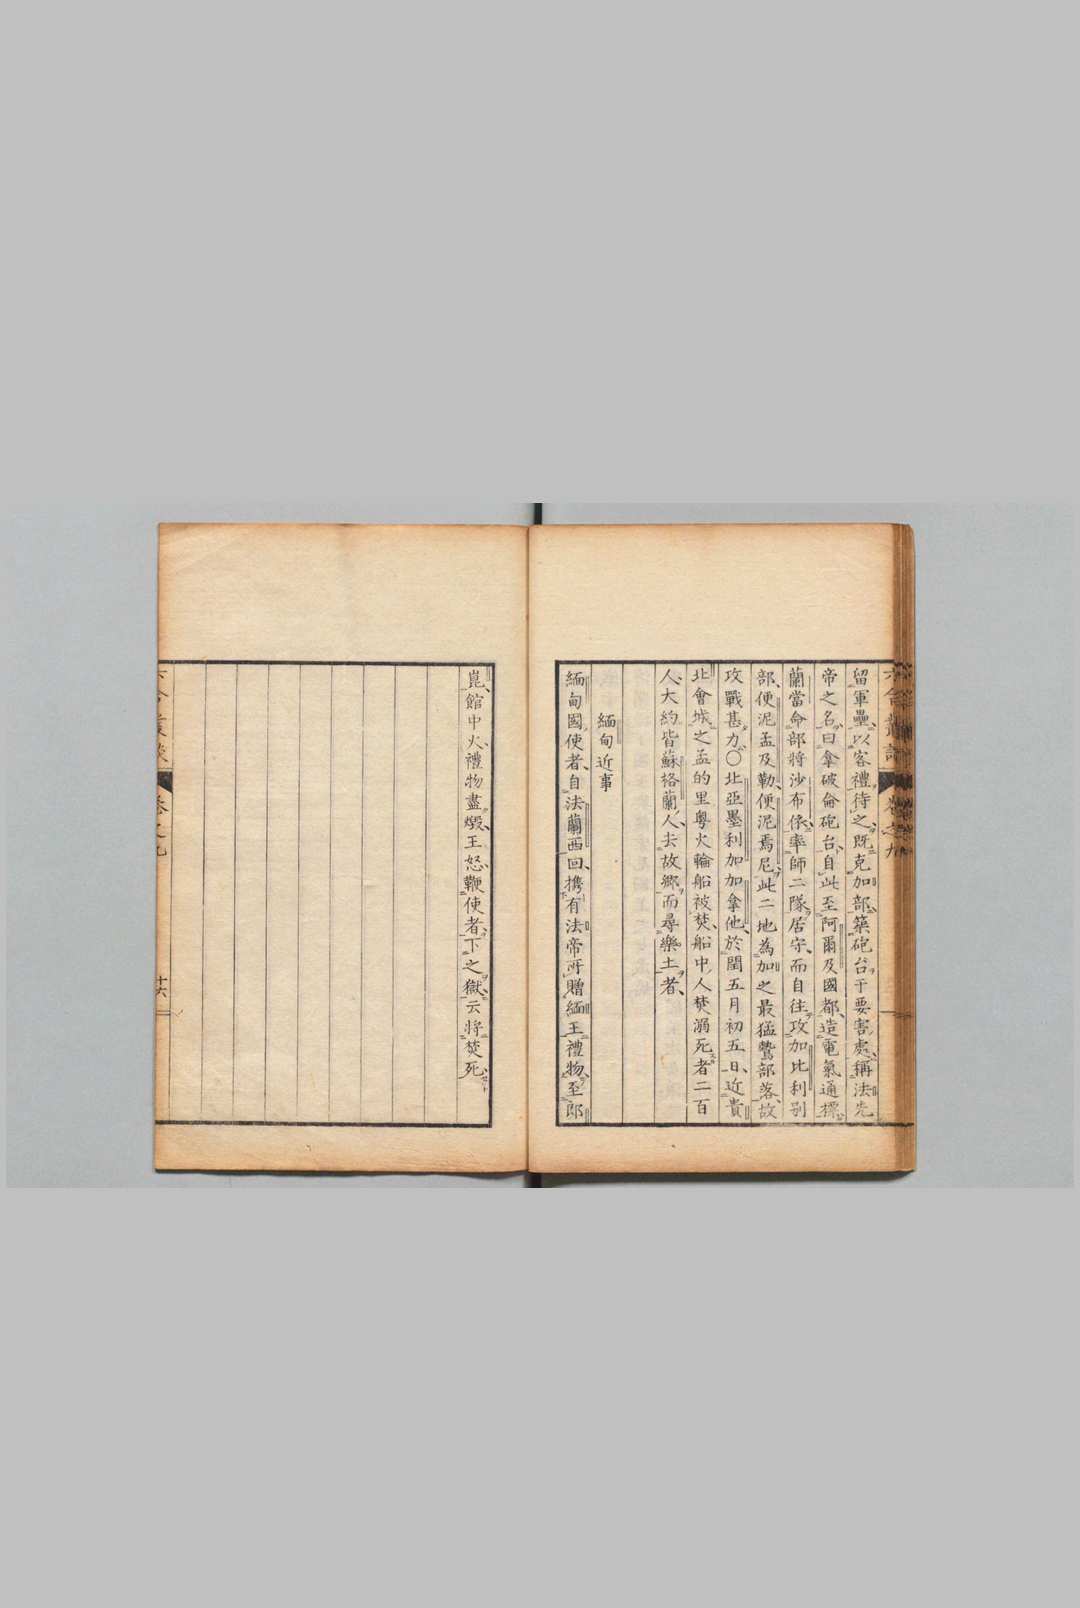 留軍壘以客禮待之既克加部築砲台于要害處稱法先
帝之名曰拿破侖砲台自此至阿爾及國都造電氣通標
蘭當命部將沙布係率師二隊居守而自往攻加比利別
部便泥孟及勒便泥焉尼此二地為加之最猛鷙部落故
攻戰甚力〇北亞墨利加加拿他於閏五月初五日近貴
北會城之孟的里粵火輪船被焚船中人焚溺死者二百
人大約皆蘇格蘭人去故鄉而尋樂土者
緬甸近事
緬甸國使者自法蘭西回攜有法帝所贈緬王禮物至郎
崑館中火禮物盡燬王怒鞭使者下之獄云將焚死
六合叢談 卷之九
六合叢談 卷之九 十六